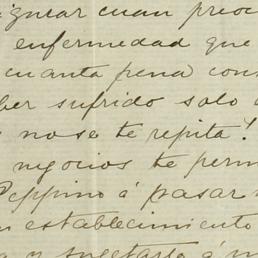 cuan preoc
enfermedad que
cuanta pena con
ber sufrido solo
no se te repita!
negocios te perm
Peppino á pasar
establecimiento
y sugetarlo á m